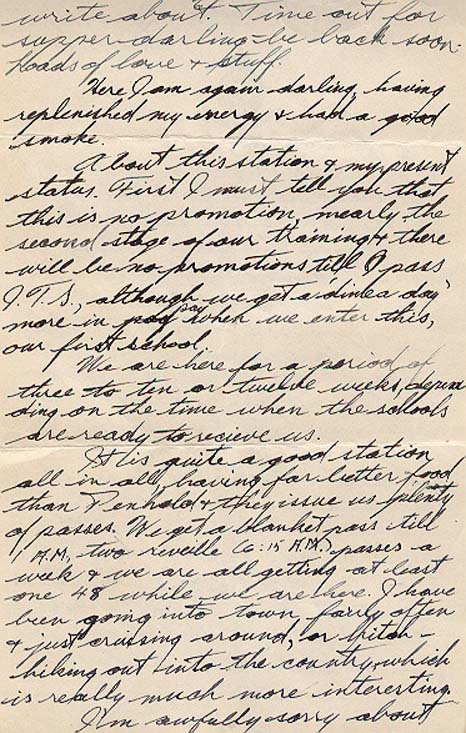 write about. Time out for
supper darling - be back soon.
Loads of love & stuff.
Here I am again darling, having
replenished my energy & had a good
smoke.
About this station & my present
status. First I must tell you that
this is no promotion, mearly the
second stage of our training & there
will be no promotions till I pass
I.T.S., although we get a "dime a day"
more in pay when we enter this,
our first school.
We are here for a period of
three to ten or twelve weeks, depen
ding on the time when the schools
are ready to recieve us.
It is quite a good station
all in all, having far better food
than Penhold & they issue us plenty
of passes. We get a blanket pass till
A.M., two reveille (6:15 A.M.) passes a
week & we are all getting at least
one 48 while we are here. I have
been going into town fairly often
& just cruising around, or hitch-
hiking out into the country, which
is really much more interesting.
I'm awfully sorry about